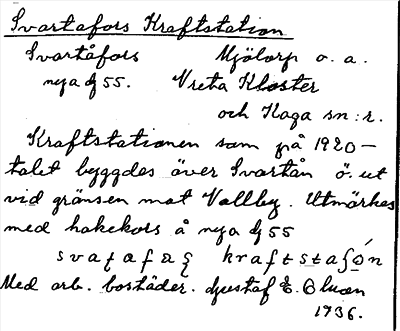 Svartafors Kraftstation
Svartåfors Mjölorp o. a.
nya dj 55. Vreta Kloster
och Kaga sn:r.
Kraftstationen som på 1920–
talet byggdes över Svartån ö. ut
vid gränsen mot Vallby. Utmärkes
med hakekors å nya dj 55
svaṭafaʂ kraftstaʃón
Med arb. bostäder. Gustaf E.
1936.